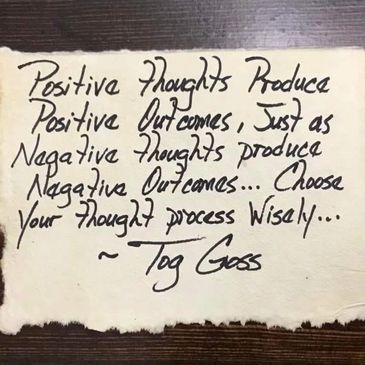 Positive thoughts Produce
Positive Outcomes, Just as
Negative thoughts produce
Negative Outcomes... Choose
Your thought process Wisely...
~ Tog Goss